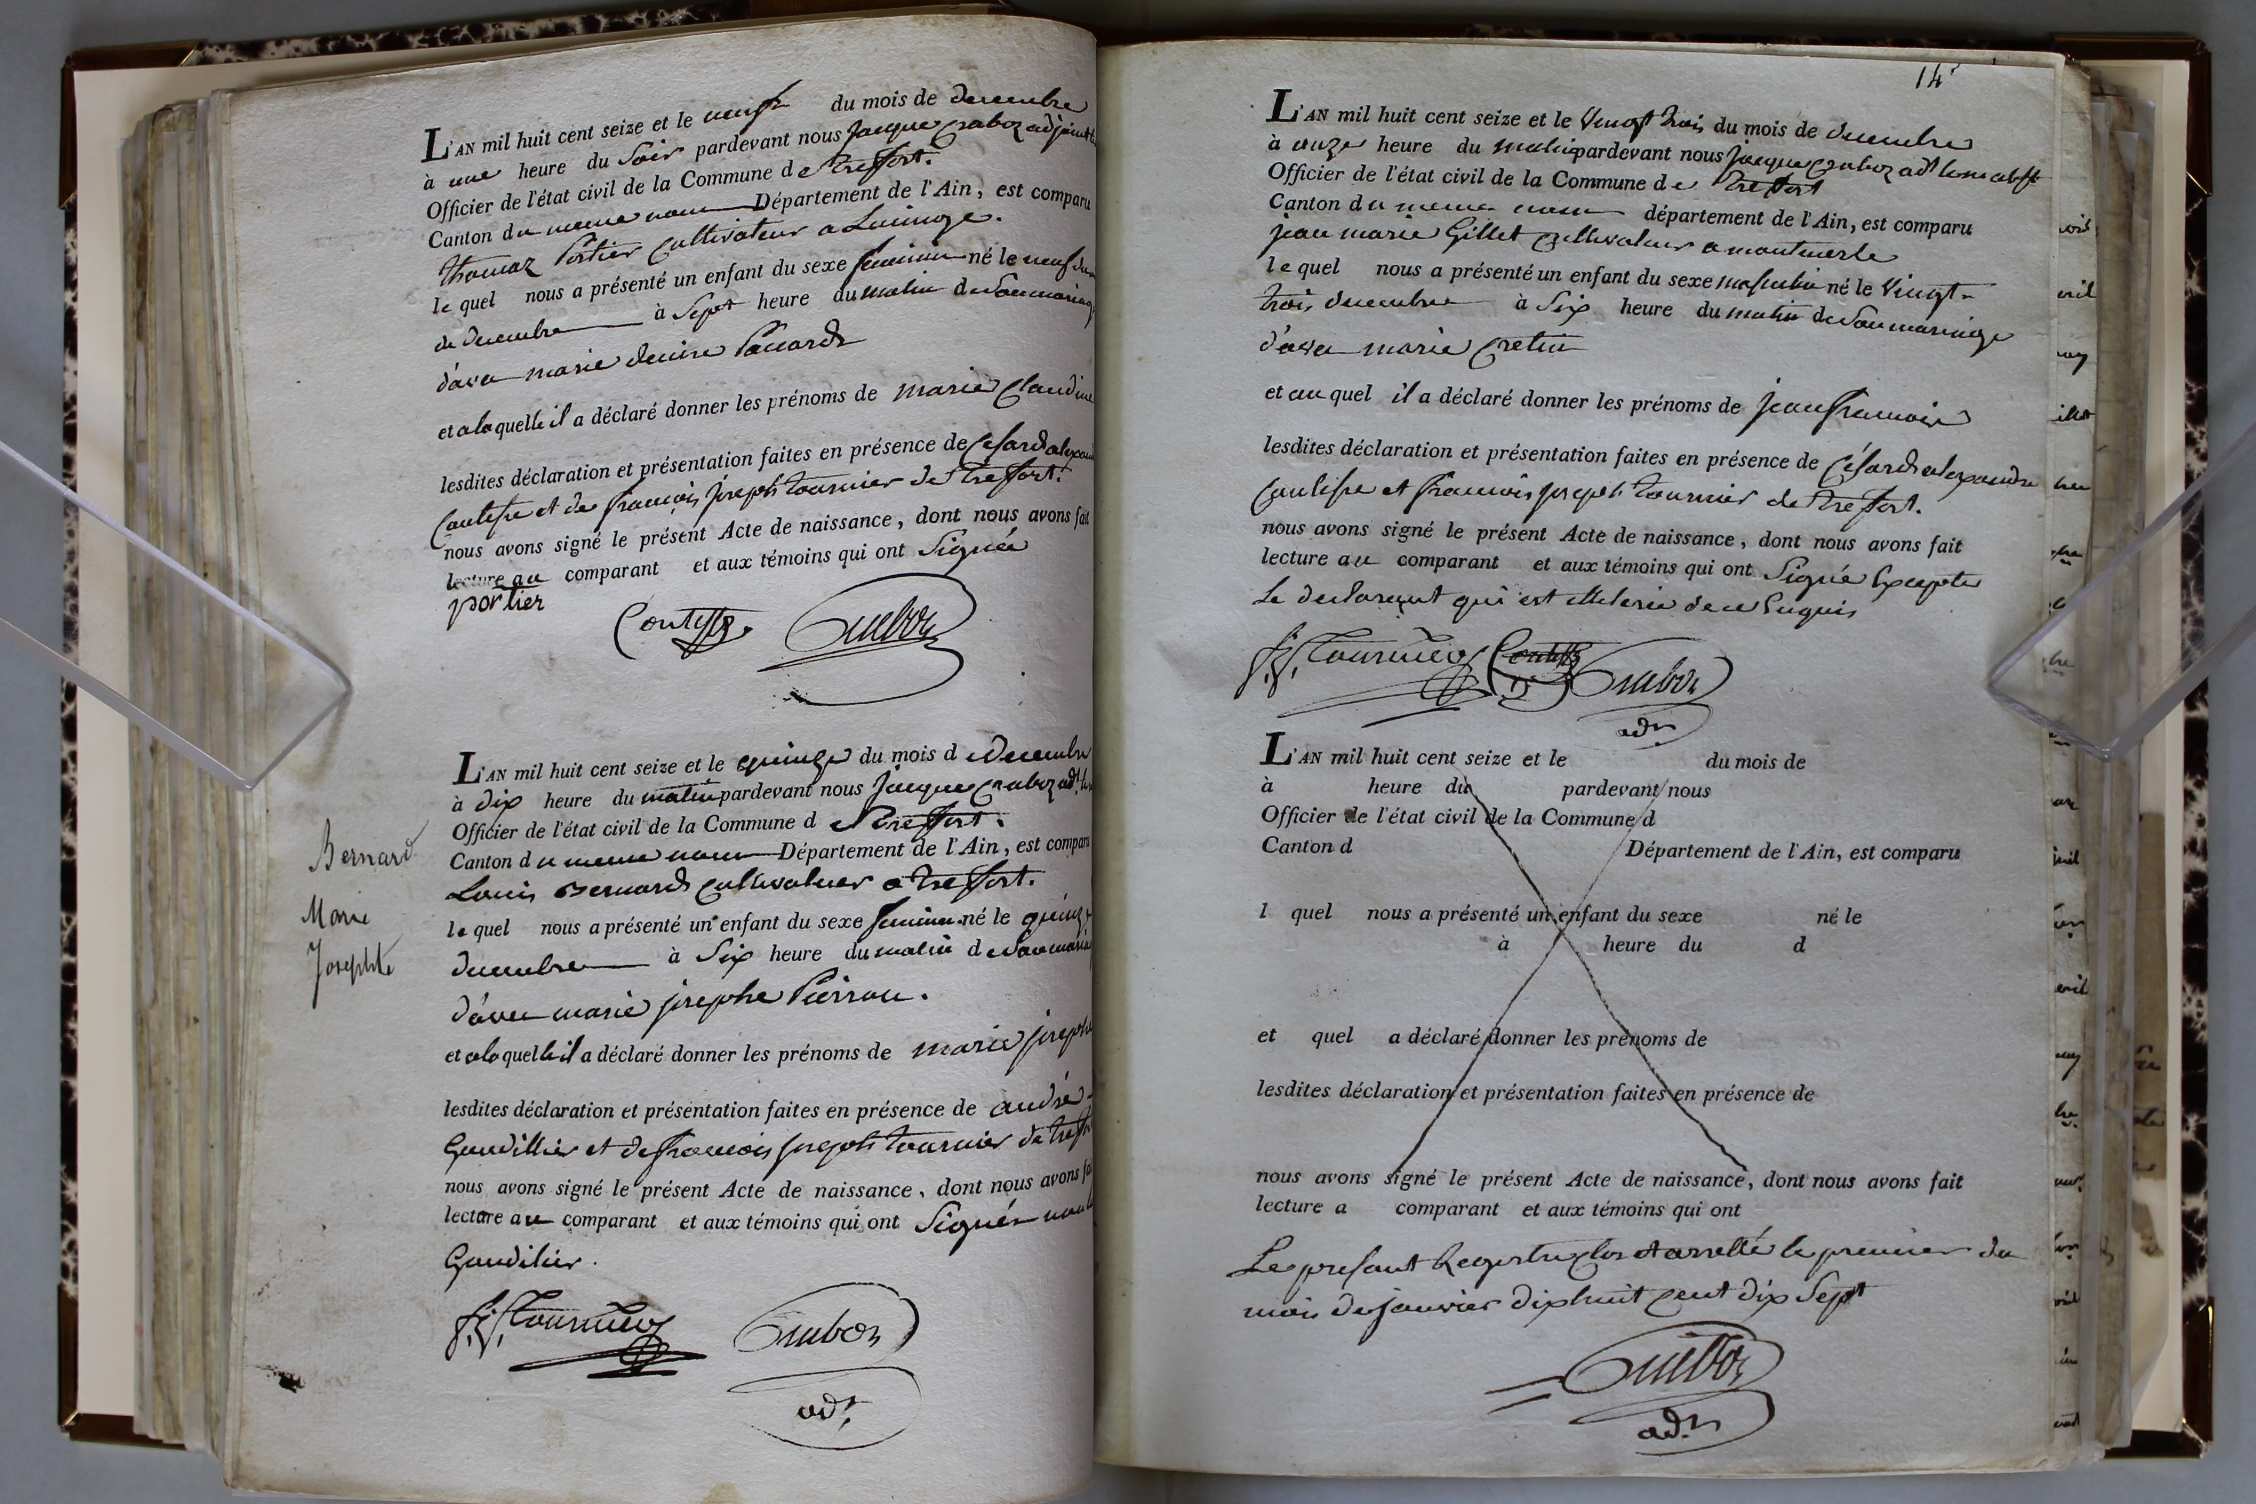 L'AN mil huit cent seize et le neuf du mois de decembre
à une heure du Soir pardevant nous Jacque Craboz adjoint
Officier de l'état civil de la Commune de Treffort.
Canton du meme nom Département de l'Ain, est comparu
thomaz Portier Cultivateur a
le quel nous a présenté un enfant du sexe feminin né le neuf du
de decembre à Sept heure du matin de Son mariage
d'avec marie denise Pauard
et a la quelle il a déclaré donner les prénoms de marie Claudine
lesdites déclaration et présentation faites en présence de Césard
et de françois joseph tournier de treffort.
nous avons signé le présent Acte de naissance, dont nous avons fait
lecture au comparant et aux témoins qui ont Signée
portier
L'AN mil huit cent seize et le quinze du mois de decembre
à dix heure du matin pardevant nous Jacque Craboz adt.
Officier de l'état civil de la Commune de Treffort.
Canton du meme nom Département de l'Ain, est comparu
Bernard
Louis Bernard Cultivateur a treffort.
Marie
le quel nous a présenté un enfant du sexe feminin né le quinze
Josephte
decembre à Six heure du matin de Son mariage
d'avec marie josephe Pierron.
et a la quelle il a déclaré donner les prénoms de marie josephe
lesdites déclaration et présentation faites en présence de andré
Gaudillier et de francois joseph tournier de treffort
nous avons signé le présent Acte de naissance, dont nous avons fait
lecture au comparant et aux témoins qui ont Signés non le
Gaudilier.
f. j. Tournier Craboz
adt.
14
L'AN mil huit cent seize et le Vingt trois du mois de decembre
à onze heure du matin pardevant nous jacque Craboz adt
Officier de l'état civil de la Commune de Treffort
Canton du meme nom département de l'Ain, est comparu
jean marie Gillet Cultivateur a montmerle
le quel nous a présenté un enfant du sexe masculin né le Vingt
trois decembre à Six heure du matin de Son mariage
d'avec marie Cretin
et au quel il a déclaré donner les prénoms de jean francois
lesdites déclaration et présentation faites en présence de Césard alexandre
et francois joseph tournier de treffort.
nous avons signé le présent Acte de naissance, dont nous avons fait
lecture au comparant et aux témoins qui ont Signée Excepté
Le declarant qui est de ce Enquis
f. j. Tournier Craboz
adt
L'AN mil huit cent seize et le du mois de
à heure du pardevant nous
Officier de l'état civil de la Commune d
Canton d Département de l'Ain, est comparu
l quel nous a présenté un enfant du sexe né le
à heure du d
et quel a déclaré donner les prénoms de
lesdites déclaration et présentation faites en présence de
nous avons signé le présent Acte de naissance, dont nous avons fait
lecture a comparant et aux témoins qui ont
Le presant Registre Clos et arretté le premier du
mois de janvier dixhuit cent dix Sept
Craboz
adt